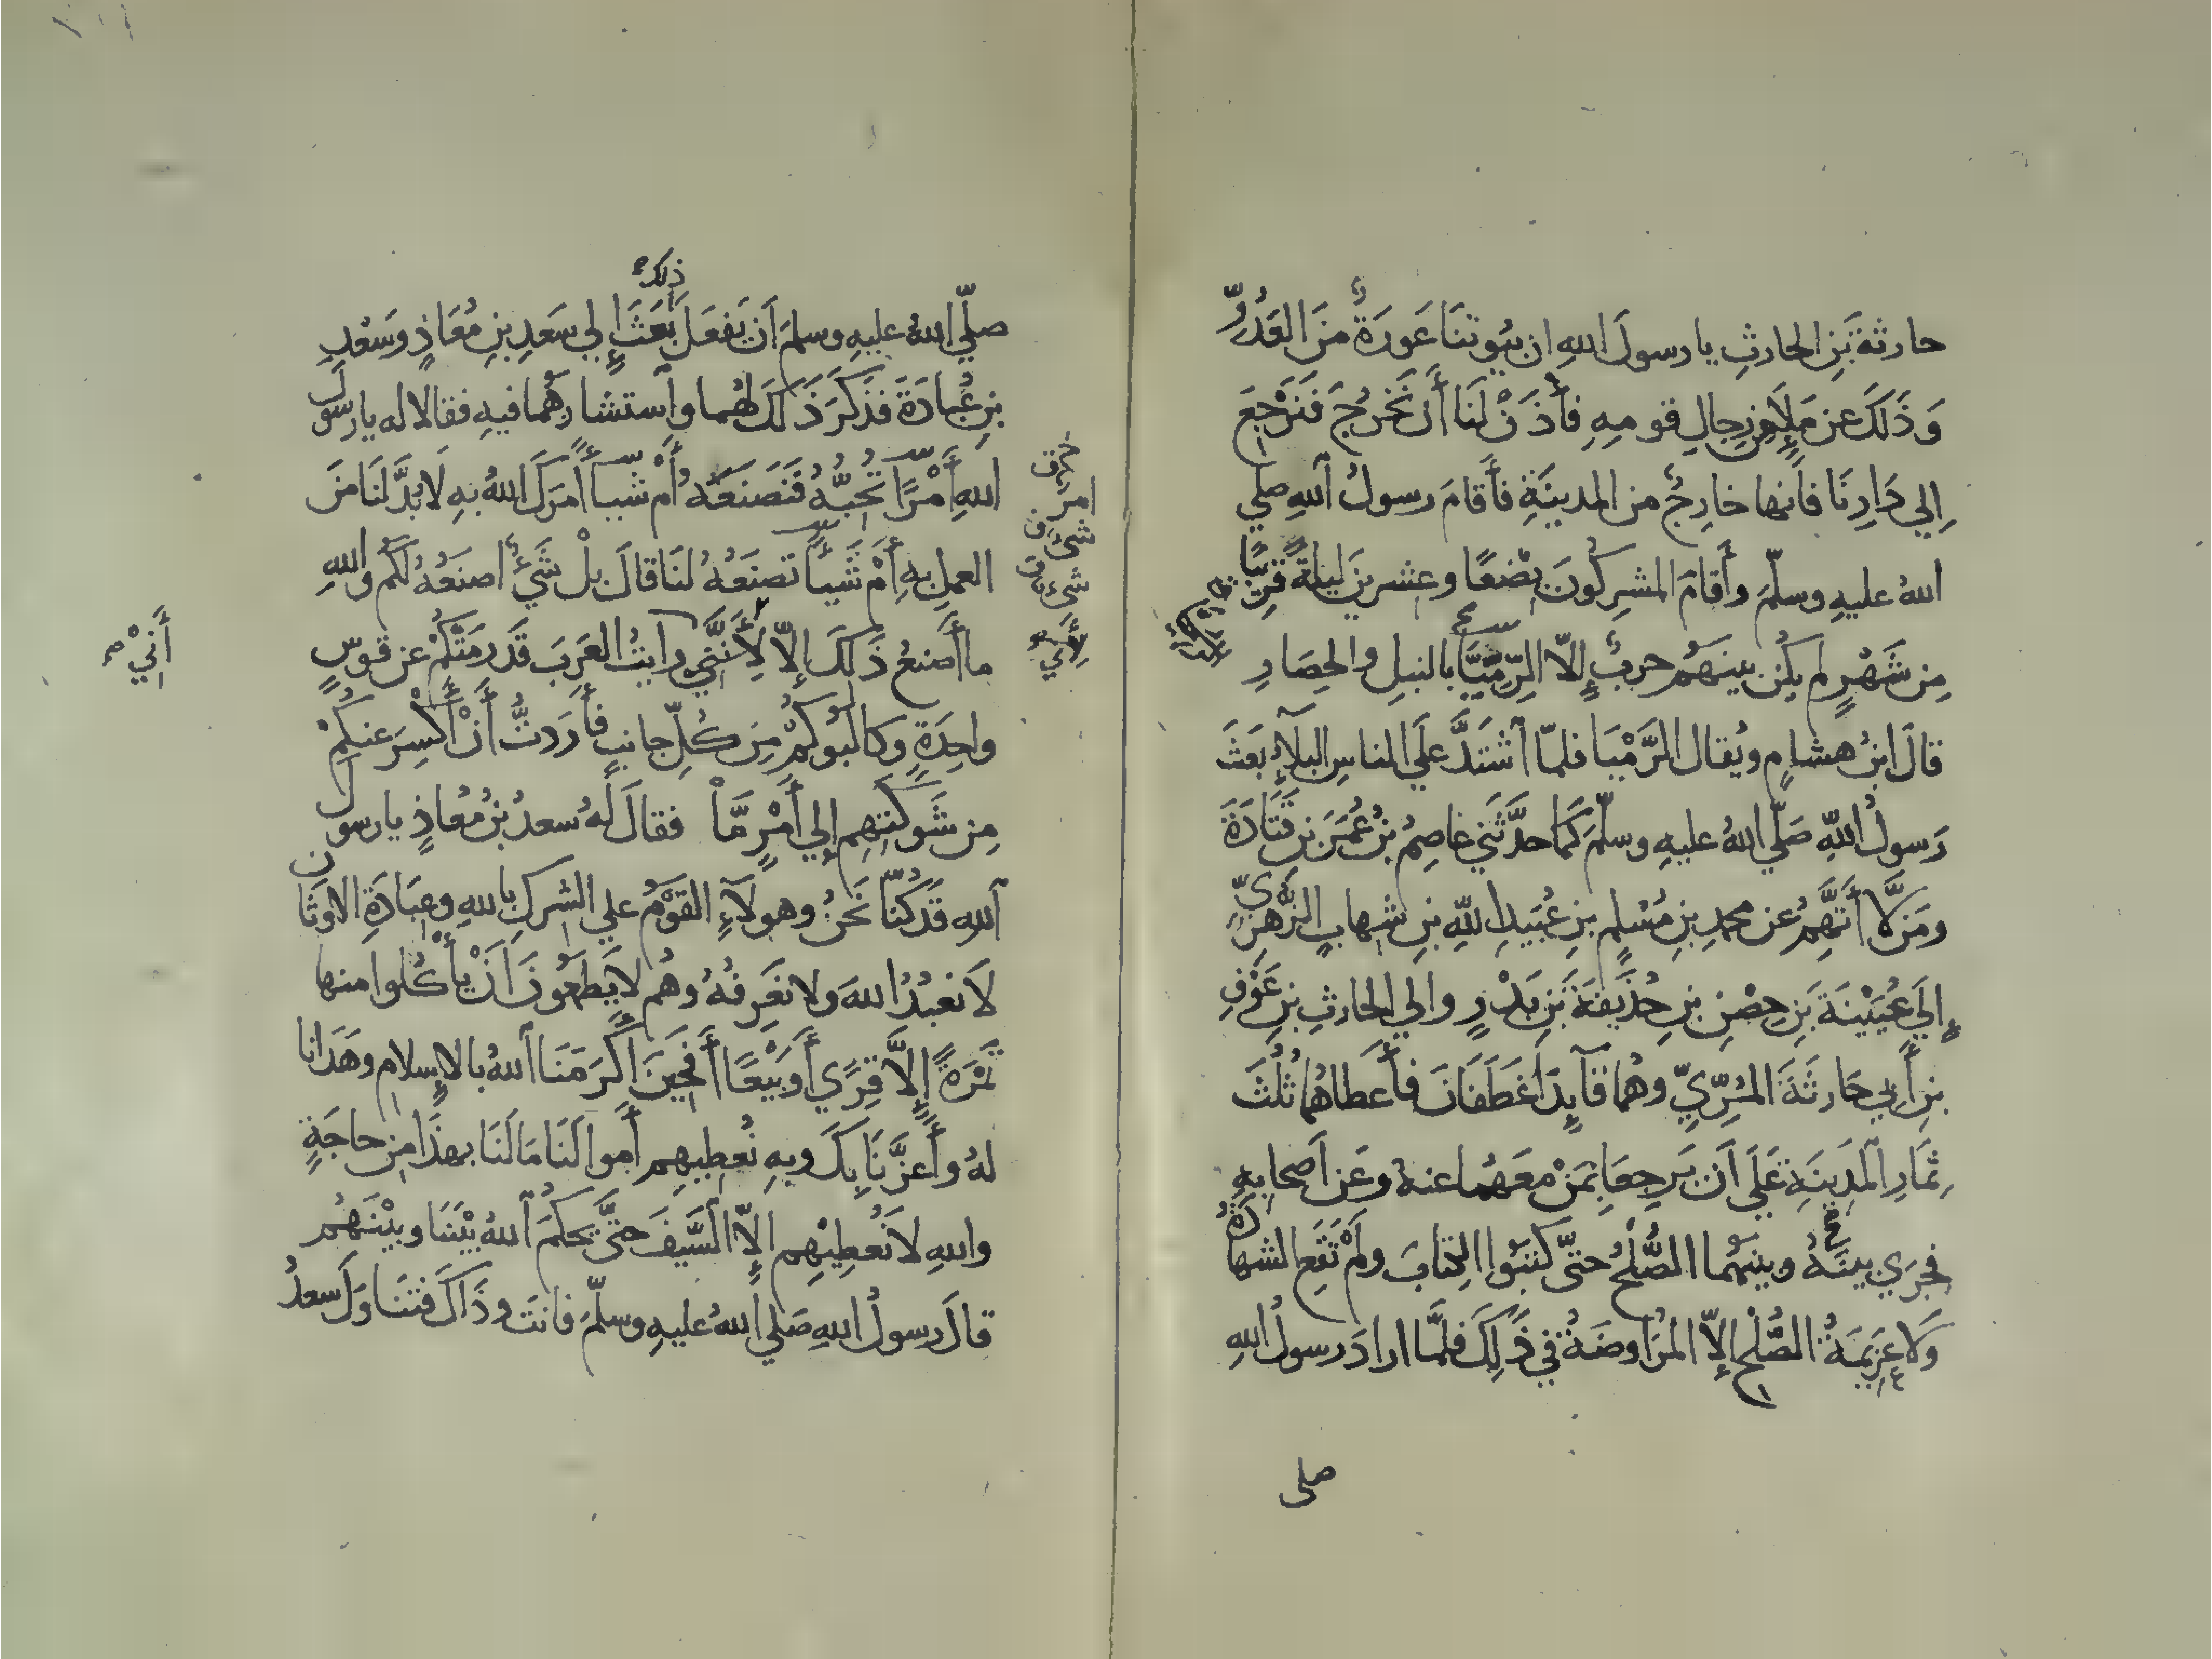 حارثةَ بنِ الحارثِ يا رسولَ اللهِ ان بيُوتنَا عَورَةٌ منَ العَدُوِّ
وَذَلكَ عن مَلَإٍ من رجالِ قومِهِ فأْذَنْ لنَا أَن نَخرُجَ فَنَرْجِعَ
إِلي دَارِنَا فأنها خارِجٌ من المدينَةِ فأَقامَ رسولُ اللهِ صلي
اللهُ عليهِ وسلّمَ وأَقامَ المشرِكُونَ بِضْعًا وعشرينَ ليلةً قرِيبًا
مِن شَهْرٍ لم يكُن بينَهُم حربٌ إلّا الرِّمِّيَّا بالنبلِ والحِصَارِ
قالَ ابنُ هشامٍ ويُقال الرَّمْيَا فلمّا آشتَدَّ علَي الناسِ البلَآءُ بَعَثَ
رَسولُ اللهِ صَلّي اللهُ عليهِ وسلّمَ كمَا حدَّثني عاصِمُ بنُ عُمَرَ بنِ قَتَادَةَ
ومَن لَّا أتّهِمُ عن محمدِ بنِ مُسْلمِ بنِ عُبَيدِ اللهِ بنِ شهابٍ الزُّهرِيِّ
إلَي عُيَيْنَةَ بنِ حِصْنِ بنِ حُذَيفَةَ بنِ بَدْرٍ والي الحارثِ بنِ عَوْفِ
بنِ أَبِي حَارثَةَ المُرِّيِّ وهُما قآيِدَا غَطَفَانَ فأَعطَاهُما ثُلُثَ
ثِمَارِ المَدِينَةِ عَلَي أَن يَرجِعَا بِمَنْ معَهُما عنهُ وعَن أصحابهِ
فجرَي بينَهُ وبينهُما الصُّلْحُ حتّي كتبُوا الكِتَابَ ولَمْ تَقَعِ الشهادَةُ
وَلَا عَزِيمَةُ الصُّلْحِ إلّا المُرَاوضَةُ في ذَلِكَ فلَمَّا ارادَ رسولُ اللهِ
صلى
ذلك
صلّي اللهُ عليهِ وسلمَ أَن يَفعَلَ بَعَثَ إِلي سَعدِ بنِ مُعَاذٍ وسَعْدِ
بنِ عُبادَةَ فذَكَرَ ذَلكَ لهُما وآستشارَهُما فيهِ فقالا له يا رسولَ
اللهِ أَمْرًا تُحِبُّهُ فَنَصنَعُهُ أَمْ شيئًا أَمَرَكَ اللهُ بهِ لَا بُدَّ لنَا منَ
العملِ بهِ أَمْ شَيئًا تصنَعُهُ لنَا قالَ بلْ شَيْءٌ اصنَعُهُ لكُم واللهِ
ما أَصنعُ ذَلكَ إلّا لِأَنَّنِي رأيتُ العَرَبَ قَد رمَتْكُمْ عن قوسٍ
واحِدَةٍ وكالَبُوكُمْ مِن كُلِّ جانبٍ فأَردتُّ أَنْ أَكْسِرَ عنكُمْ
مِن شَوكَتِهِم إِلي أَمْرٍ مَّا فقالَ لهُ سعدُ بنُ مُعَاذٍ يا رسولَ
اللهِ قَد كُنّا نَحنُ وهولَآءِ القَوْمُ علي الشركِ باللهِ وعِبَادَةِ الاوثَانِ
لَا نعبُدُ اللهَ ولا نَعرِفُهُ وهُم لا يَطمَعُونَ أَنْ يأْكُلوا منها
تَمْرَةً إلَّا قِرًي أَو بَيْعًا أَفَحِينَ أَكرَمَنَا اللهُ بالإسلام وهَدَانا
لهُ وأَعزَّنَا بِكَ وبِهِ نُعطِيهِم أَموالَنَا مَا لَنَا بهذَا من حاجَةٍ
واللهِ لَا نُعطِيْهِم إلّا السَّيفَ حتَّي يحكُمَ اللهُ بيْنَنَا وبيْنَهُم
قالَ رسولُ اللهِ صَلي اللهُ عليهِ وسلّمَ فانتَ وذَاكَ فتنَاولَ سعدُ
امرٌ
شيءٌ
شيءٌ
أَنِّي